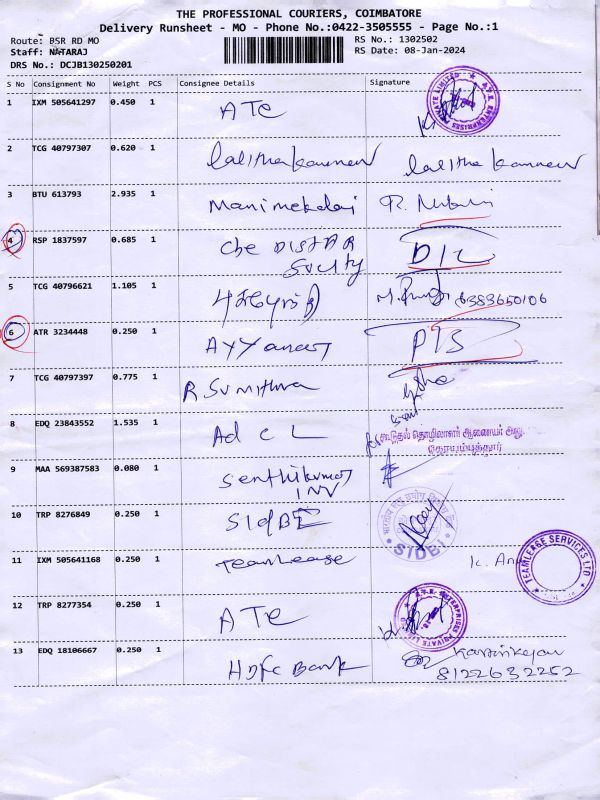 THE PROFESSIONAL COURIERS, COIMBATORE
Delivery Runsheet - MO - Phone No.:0422-3505555 - Page No.:1
Route: BSR RD MO RS No.: 1302502
Staff: NATARAJ RS Date: 08-Jan-2024
DRS No.: DCJB130250201
S No Consignment No Weight PCS Consignee Details Signature
1 IXM 505641297 0.450 1 ATC
2 TCG 40797307 0.620 1 Lalitha Kannan Lalitha Kannan
3 BTU 613793 2.935 1 Manimekalai R.
4 RSP 1837597 0.685 1 Che DISTDR D/L
Suclty
5 TCG 40796621 1.105 1 6383650106
6 ATR 3234448 0.250 1 Ayyanar PTS
7 TCG 40797397 0.775 1 R Sumithra
8 EDQ 23843552 1.535 1 Ad C L கூடுதல் தொழிலாளர் ஆணையர் அலு
கோயம்புத்தூர்
9 MAA 569387583 0.080 1 Senthilkumar
INV
10 TRP 8276849 0.250 1 SIDBI SIDBI
11 IXM 505641168 0.250 1 TeamLease TEAMLEASE SERVICES LTD
12 TRP 8277354 0.250 1 ATC
13 EDQ 18106667 0.250 1 HDFC Bank Karthikeyan
8122632252